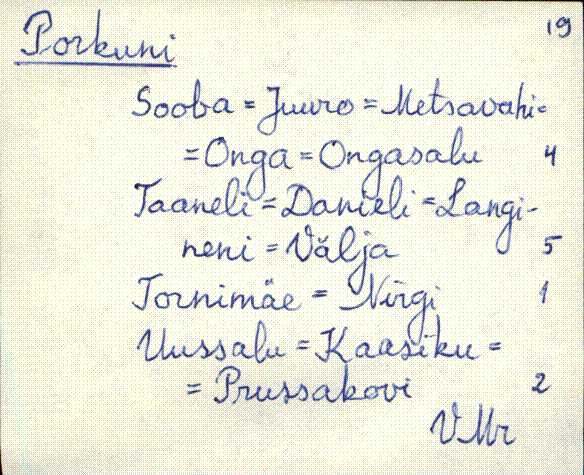 19
Porkuni
Sooba = Juuro = Metsavahi =
= Onga = Ongasalu 4
Taaneli = Danieli = Langi-
neni = Välja 5
Tornimäe = Nirgi 1
Uussalu = Kaasiku =
= Prussakovi 2
VMr